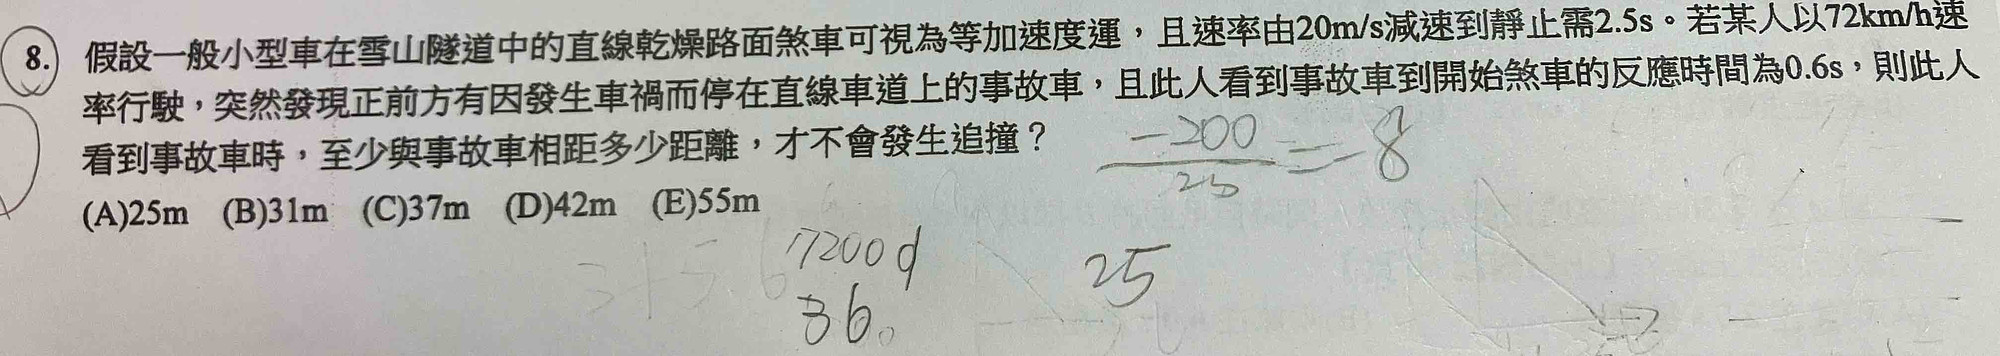 8. 假設一般小型車在雪山隧道中的直線乾燥路面煞車可視為等加速度運，且速率由20m/s減速到靜止需2.5s。若某人以72km/h速
率行駛，突然發現正前方有因發生車禍而停在直線車道上的事故車，且此人看到事故車到開始煞車的反應時間為0.6s，則此人
看到事故車時，至少與事故車相距多少距離，才不會發生追撞？
-200
25
=-8
(A)25m (B)31m (C)37m (D)42m (E)55m
7200
36
25